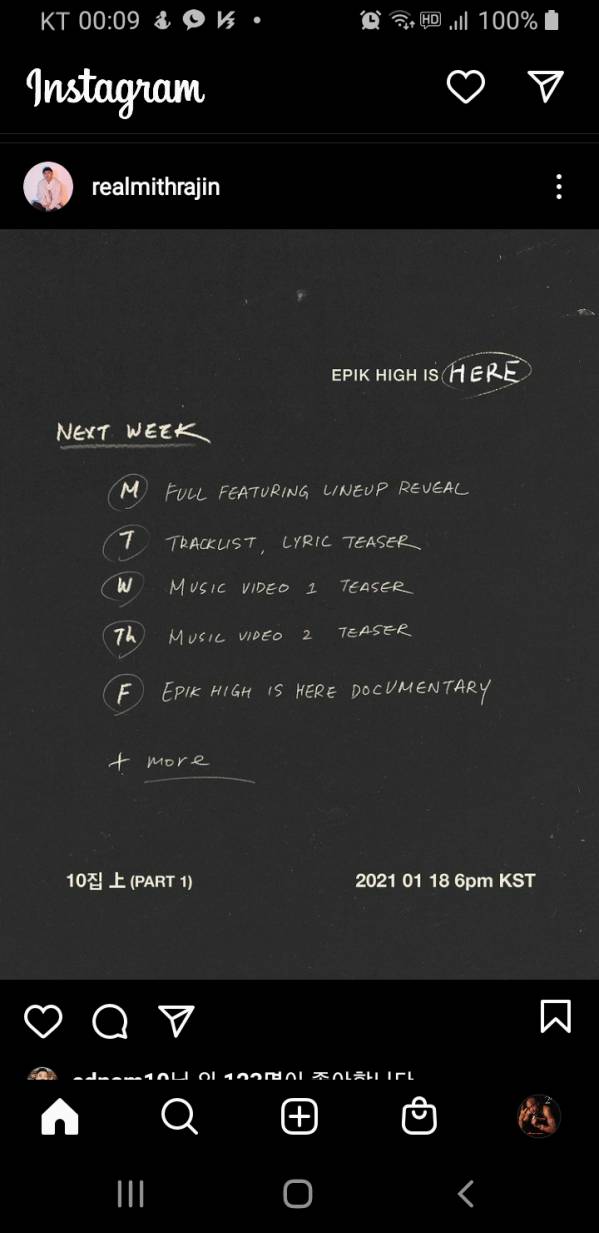 KT 00:09 HD 100%
Instagram
realmithrajin
EPIK HIGH IS HERE
NEXT WEEK
M FULL FEATURING LINEUP REVEAL
T TRACKLIST, LYRIC TEASER
W MUSIC VIDEO 1 TEASER
Th MUSIC VIDEO 2 TEASER
F EPIK HIGH IS HERE DOCUMENTARY
+ more
10집 上 (PART 1) 2021 01 18 6pm KST
님 외 123명이 좋아합니다